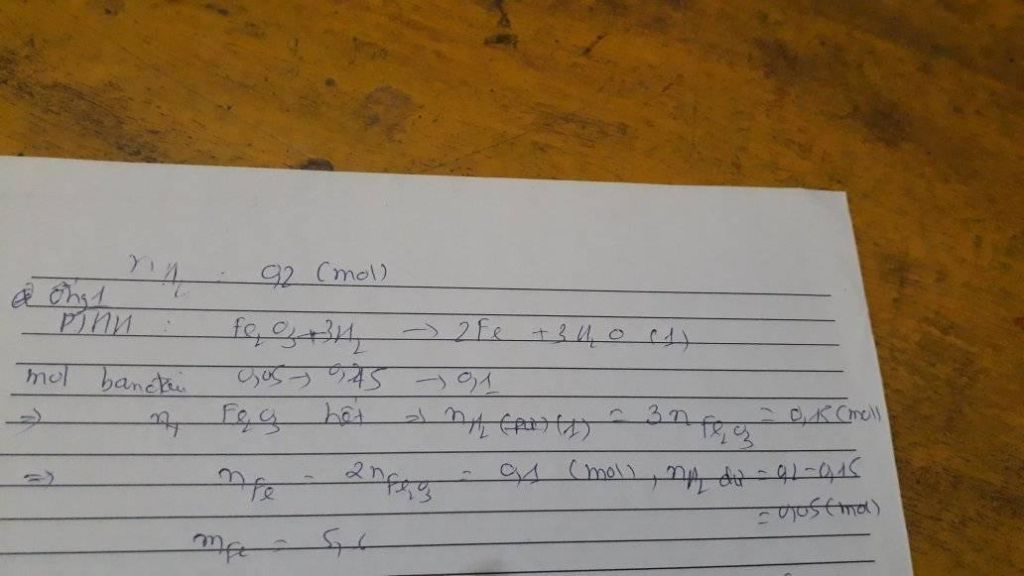 n H₂ : 0,2 (mol)
Ống 1
PTHH : Fe₂O₃ + 3H₂ → 2Fe + 3H₂O (1)
mol ban đầu 0,05 → 0,15 → 0,1
=> Fe₂O₃ hết => n H₂ (pư) (1) = 3 n Fe₂O₃ = 0,15 (mol)
=> n Fe = 2 n Fe₂O₃ = 0,1 (mol), n H₂ dư = 0,2 - 0,15
= 0,05 (mol)
m Fe = 5,6